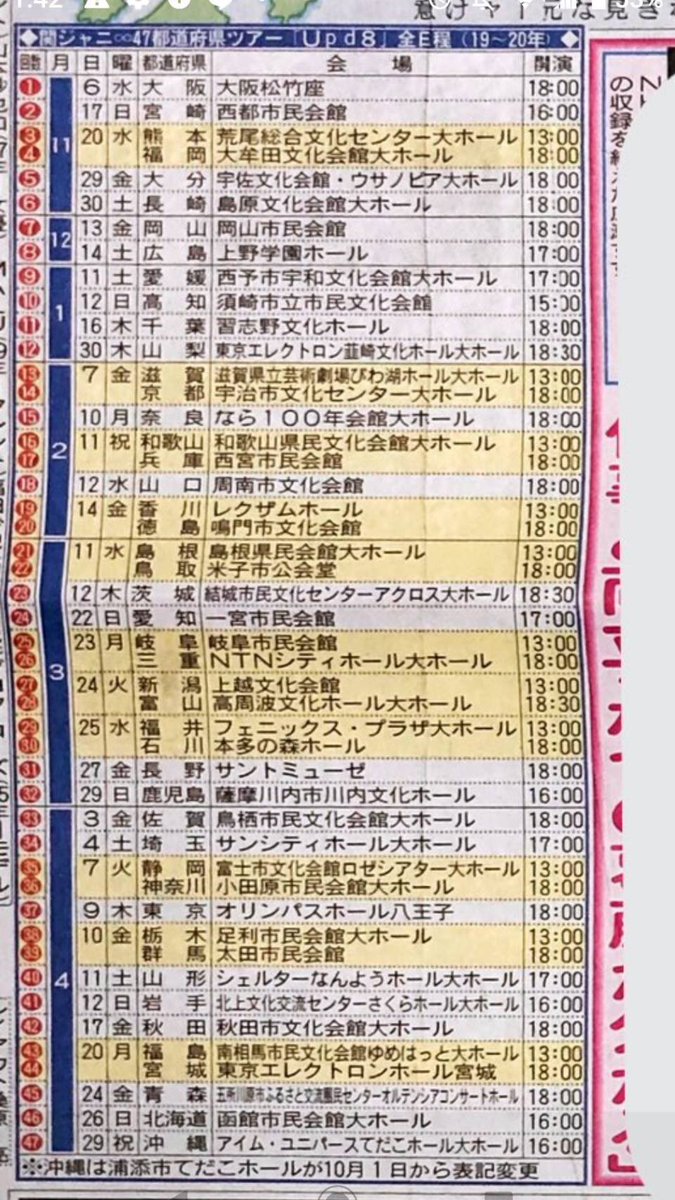 1:42
◆関ジャニ∞47都道府県ツアー「Upd8」全日程（19～20年）◆
回数 月 日 曜 都道府県 会場 開演
1 11 6 水 大阪 大阪松竹座 18:00
2 17 日 宮崎 西都市民会館 16:00
3 20 水 熊本 荒尾総合文化センター大ホール 13:00
4 福岡 大牟田文化会館大ホール 18:00
5 29 金 大分 宇佐文化会館・ウサノピア大ホール 18:00
6 30 土 長崎 島原文化会館大ホール 18:00
7 12 13 金 岡山 岡山市民会館 18:00
8 14 土 広島 上野学園ホール 17:00
9 1 11 土 愛媛 西予市宇和文化会館大ホール 17:00
10 12 日 高知 須崎市立市民文化会館 15:00
11 16 木 千葉 習志野文化ホール 18:00
12 30 木 山梨 東京エレクトロン韮崎文化ホール大ホール 18:30
13 2 7 金 滋賀 滋賀県立芸術劇場びわ湖ホール大ホール 13:00
14 京都 宇治市文化センター大ホール 18:00
15 10 月 奈良 なら100年会館大ホール 18:00
16 11 祝 和歌山 和歌山県民文化会館大ホール 13:00
17 兵庫 西宮市民会館 18:00
18 12 水 山口 周南市文化会館 18:00
19 14 金 香川 レクザムホール 13:00
20 徳島 鳴門市文化会館 18:00
21 3 11 水 島根 島根県民会館大ホール 13:00
22 鳥取 米子市公会堂 18:00
23 12 木 茨城 結城市民文化センターアクロス大ホール 18:30
24 22 日 愛知 一宮市民会館 17:00
25 23 月 岐阜 岐阜市民会館 13:00
26 三重 NTNシティホール大ホール 18:00
27 24 火 新潟 上越文化会館 13:00
28 富山 高周波文化ホール大ホール 18:30
29 25 水 福井 フェニックス・プラザ大ホール 13:00
30 石川 本多の森ホール 18:00
31 27 金 長野 サントミューゼ 18:00
32 29 日 鹿児島 薩摩川内市川内文化ホール 16:00
33 4 3 金 佐賀 鳥栖市民文化会館大ホール 18:00
34 4 土 埼玉 サンシティホール大ホール 17:00
35 7 火 静岡 富士市文化会館ロゼシアター大ホール 13:00
36 神奈川 小田原市民会館大ホール 18:00
37 9 木 東京 オリンパスホール八王子 18:00
38 10 金 栃木 足利市民会館大ホール 13:00
39 群馬 太田市民会館 18:00
40 11 土 山形 シェルターなんようホール大ホール 17:00
41 12 日 岩手 北上文化交流センターさくらホール大ホール 16:00
42 17 金 秋田 秋田市文化会館大ホール 18:00
43 20 月 福島 南相馬市民文化会館ゆめはっと大ホール 13:00
44 宮城 東京エレクトロンホール宮城 18:00
45 24 金 青森 五所川原市ふるさと交流圏民センターオルテンシアコンサートホール 18:00
46 26 日 北海道 函館市民会館大ホール 16:00
47 29 祝 沖縄 アイム・ユニバースてだこホール大ホール 16:00
※沖縄は浦添市てだこホールが10月1日から表記変更